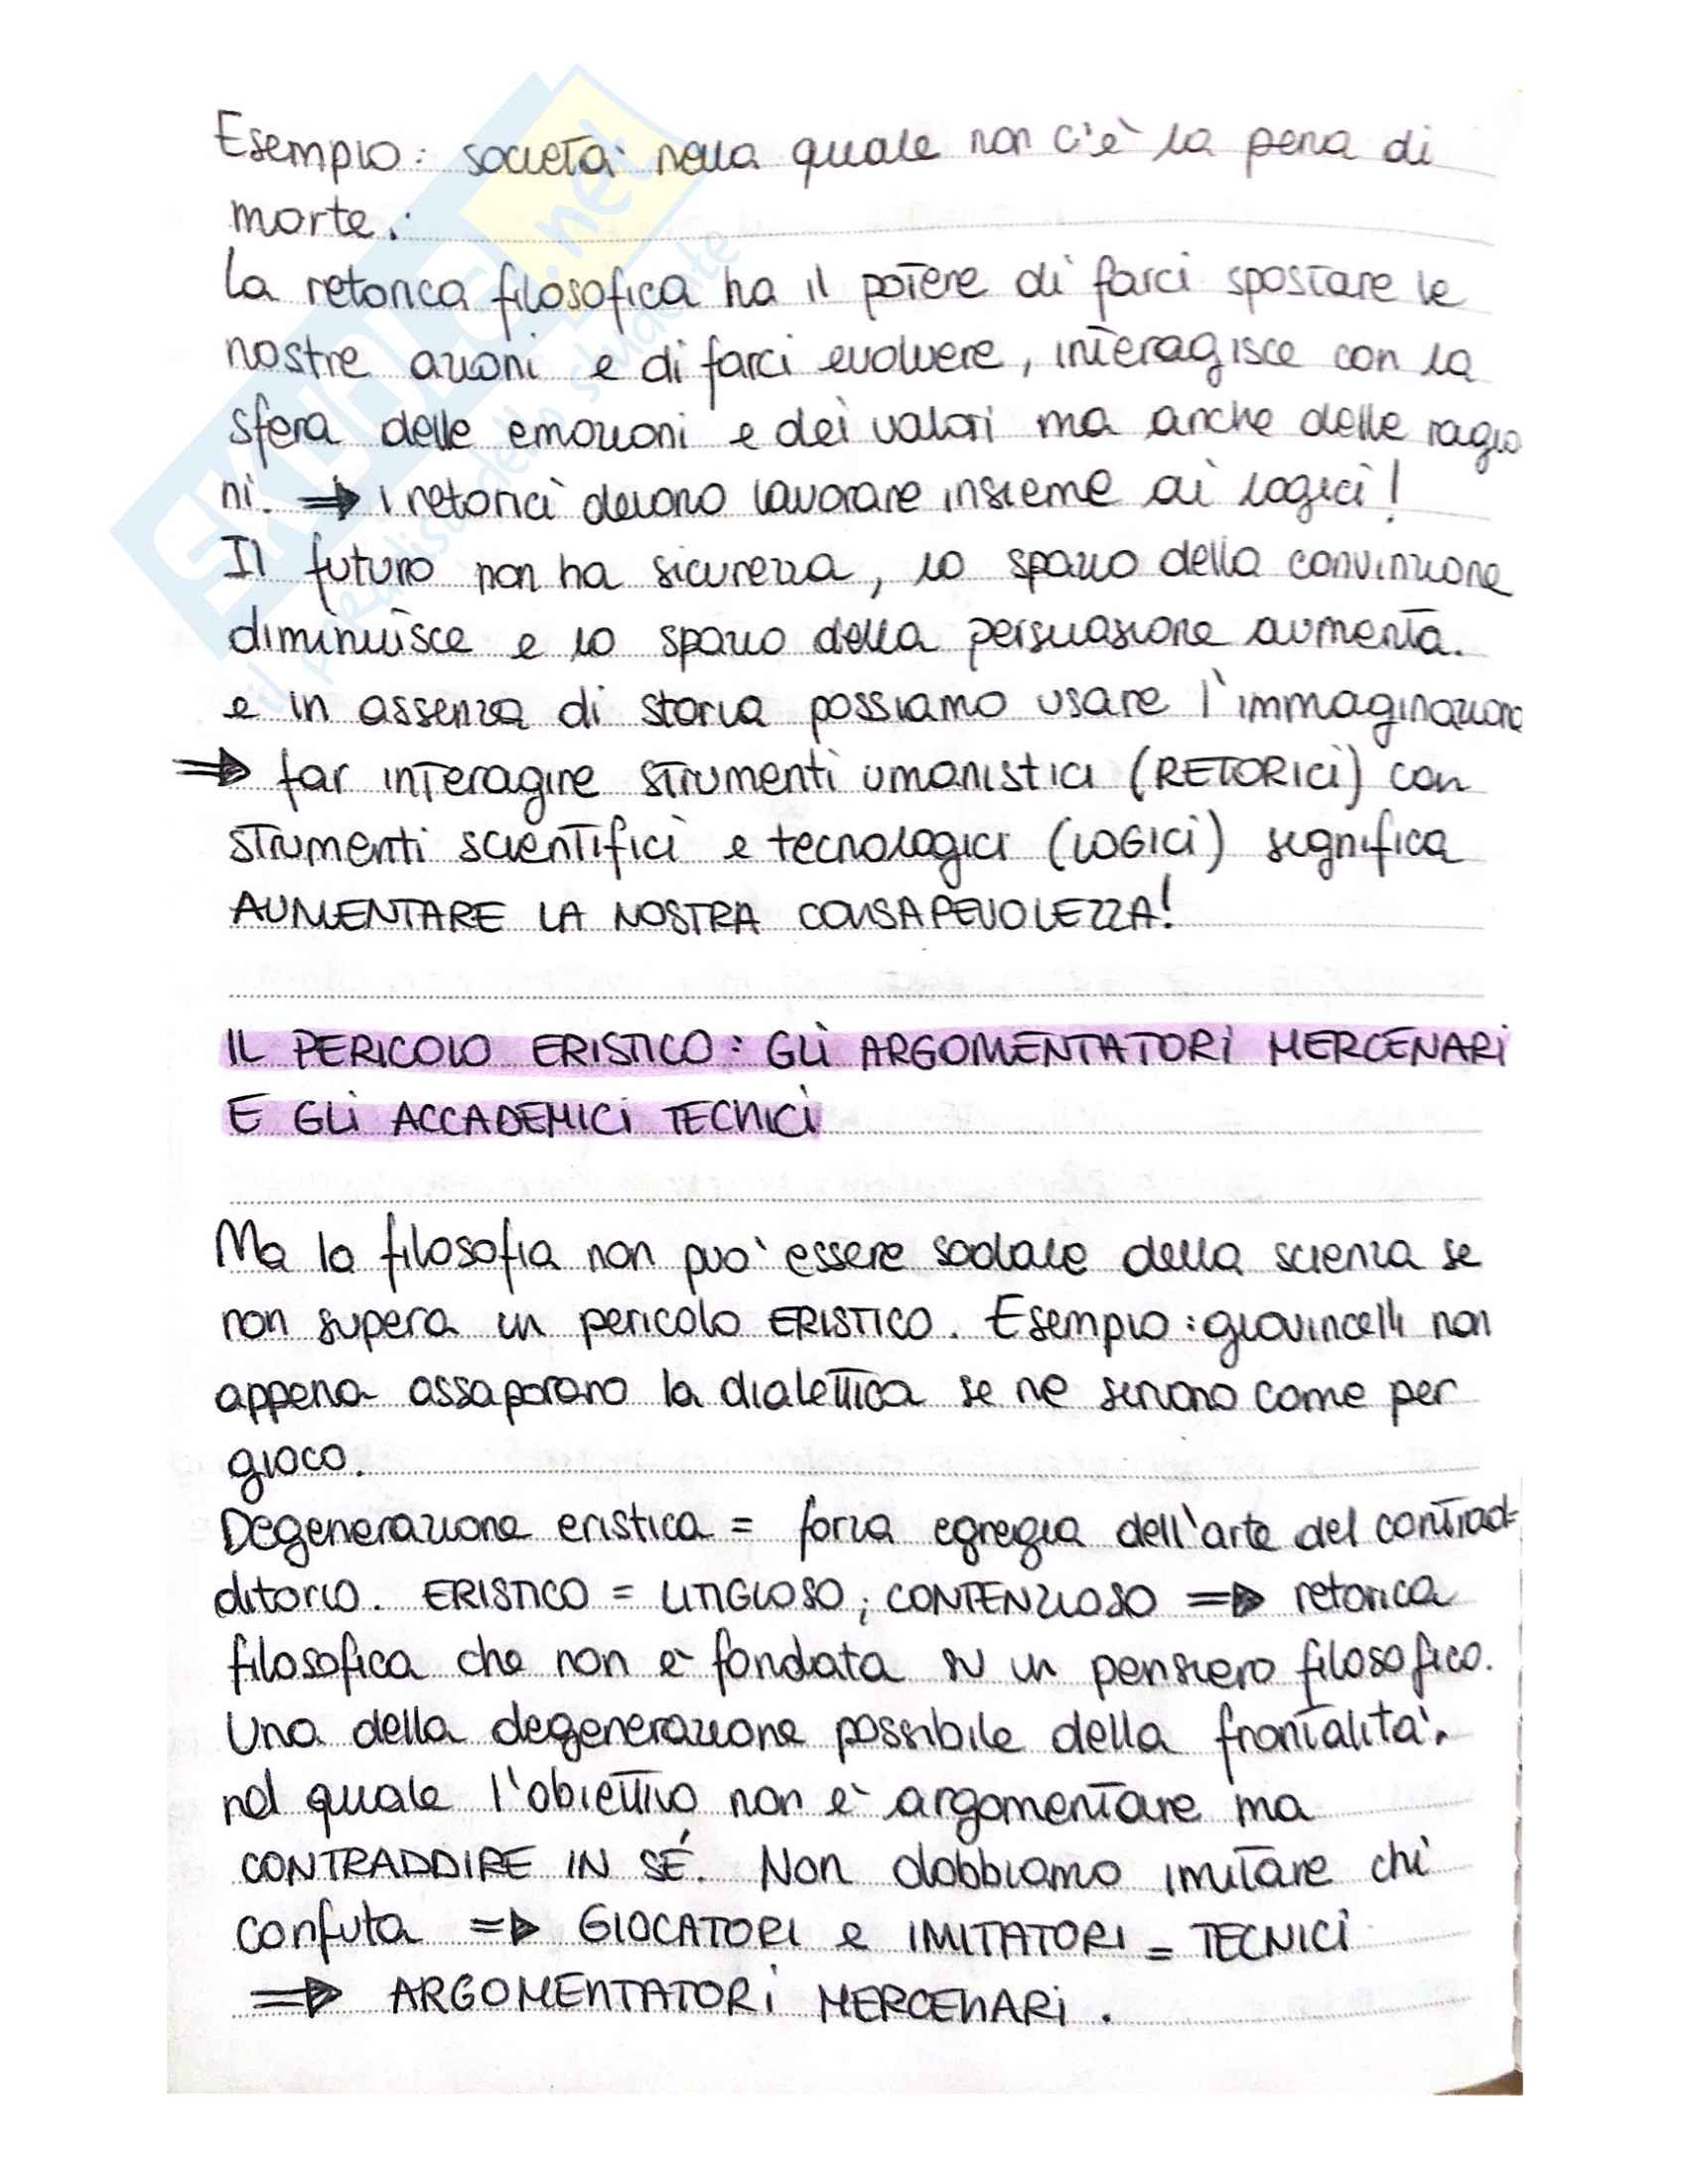 Esempio: società nella quale non c'è la pena di
morte.
La retorica filosofica ha il potere di farci spostare le
nostre azioni e di farci evolvere, interagisce con la
sfera delle emozioni e dei valori ma anche delle ragio
ni. ⇒ i retorici devono lavorare insieme ai logici!
Il futuro non ha sicurezza, lo spazio della convinzione
diminuisce e lo spazio della persuasione aumenta.
e in assenza di storia possiamo usare l'immaginazione
⇒ far interagire strumenti umanistici (RETORICI) con
strumenti scientifici e tecnologici (LOGICI) significa
AUMENTARE LA NOSTRA CONSAPEVOLEZZA!
IL PERICOLO ERISTICO: GLI ARGOMENTATORI MERCENARI
E GLI ACCADEMICI TECNICI
Ma la filosofia non può essere sodale della scienza se
non supera un pericolo ERISTICO. Esempio: giovincelli non
appena assaporano la dialettica se ne servono come per
gioco.
Degenerazione eristica = forza egregia dell'arte del contrad=
ditorio. ERISTICO = LITIGIOSO, CONTENZIOSO ⇒ retorica
filosofica che non è fondata su un pensiero filosofico.
Una della degenerazione possibile della frontalità.
nel quale l'obiettivo non è argomentare ma
CONTRADDIRE IN SÉ. Non dobbiamo imitare chi
confuta ⇒ GIOCATORI e IMITATORI = TECNICI
⇒ ARGOMENTATORI MERCENARI.
SKUOLA.net
il paradiso dello studente